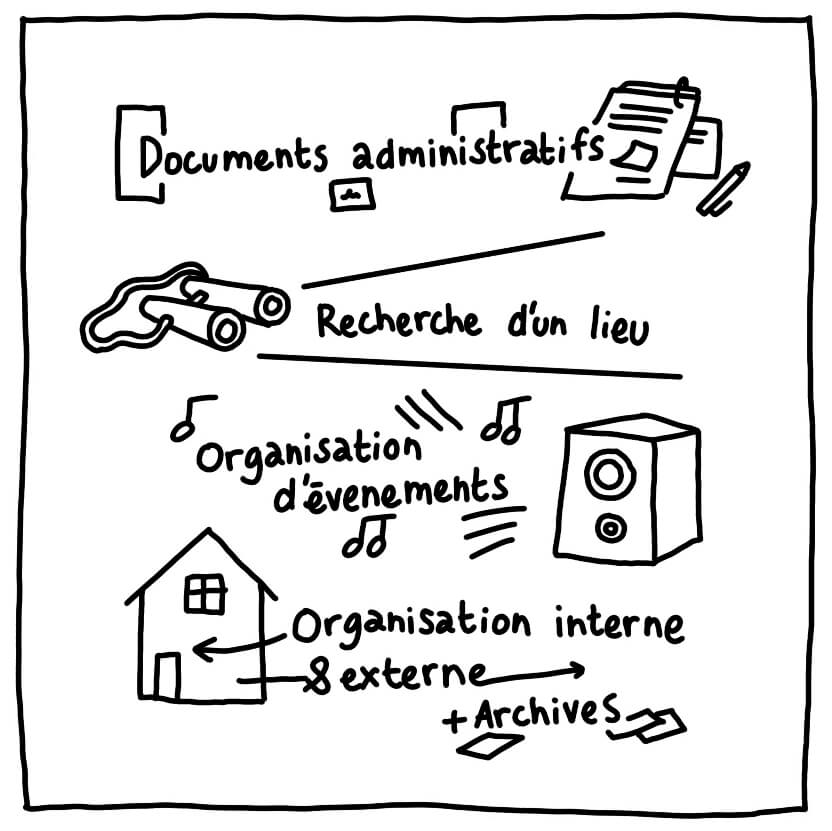 Documents administratifs
Recherche d'un lieu
Organisation
d'évenements
Organisation interne
& externe
+ Archives